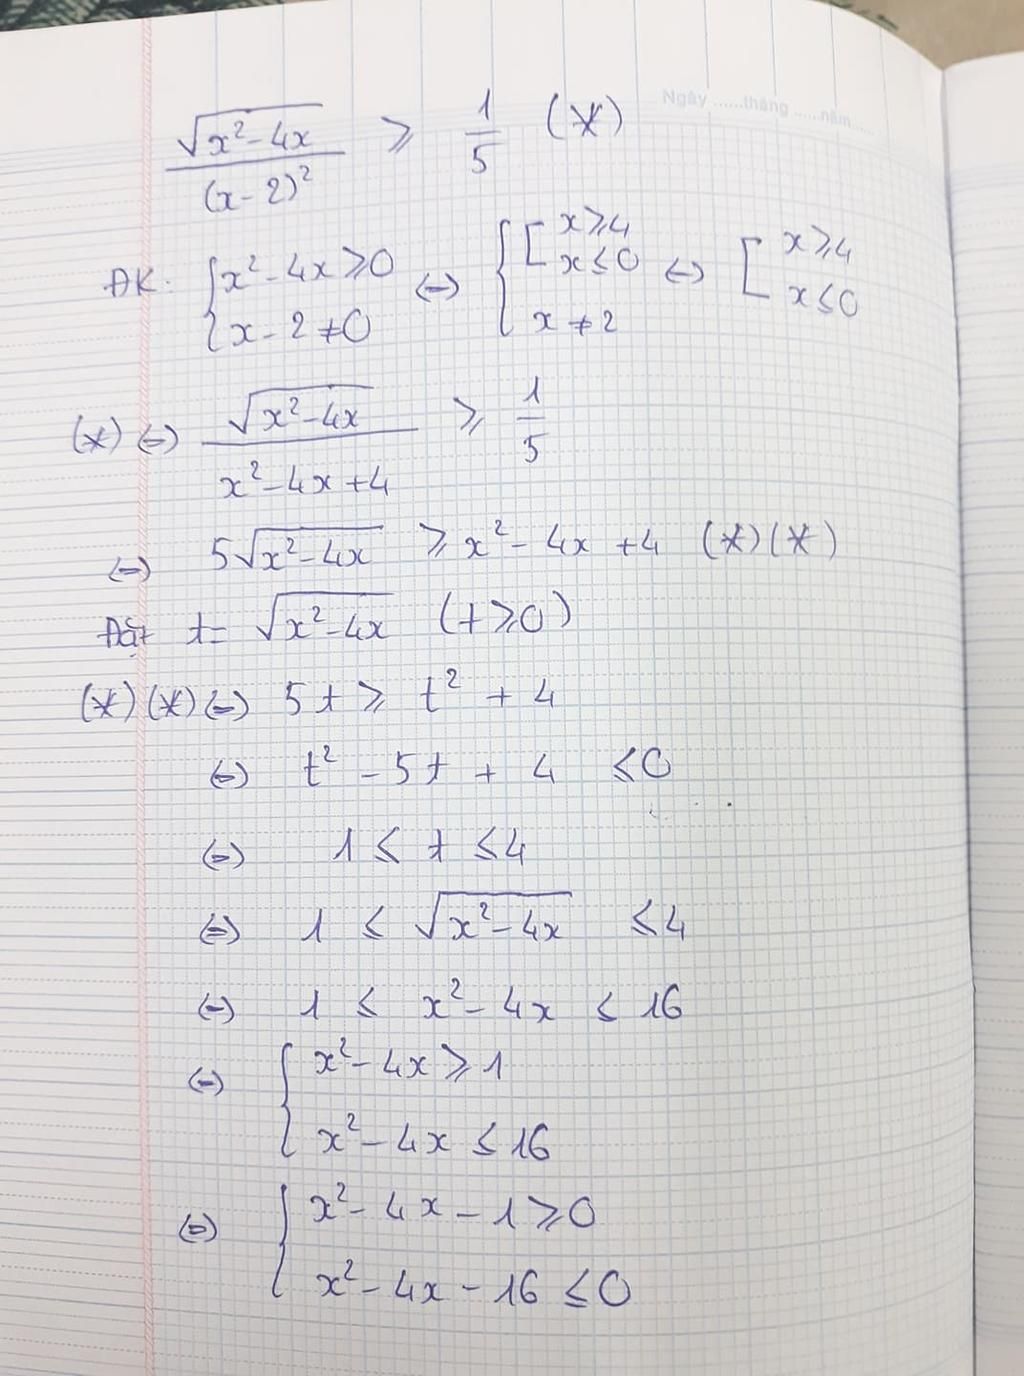 Ngày ......tháng ......năm......
√(x² - 4x) / (x - 2)² ⩾ 1/5 (*)
ĐK: { x² - 4x ⩾ 0 ; x - 2 ≠ 0 ⇔ { [ x ⩾ 4 ; x ≤ 0 ; x ≠ 2 ⇔ [ x ⩾ 4 ; x ≤ 0
(*) ⇔ √(x² - 4x) / (x² - 4x + 4) ⩾ 1/5
⇔ 5√(x² - 4x) ⩾ x² - 4x + 4 (*)(*)
Đặt t = √(x² - 4x) (t ⩾ 0)
(*)(*) ⇔ 5t ⩾ t² + 4
⇔ t² - 5t + 4 ≤ 0
⇔ 1 ≤ t ≤ 4
⇔ 1 ≤ √(x² - 4x) ≤ 4
⇔ 1 ≤ x² - 4x ≤ 16
⇔ { x² - 4x ⩾ 1
x² - 4x ≤ 16
⇔ { x² - 4x - 1 ⩾ 0
x² - 4x - 16 ≤ 0